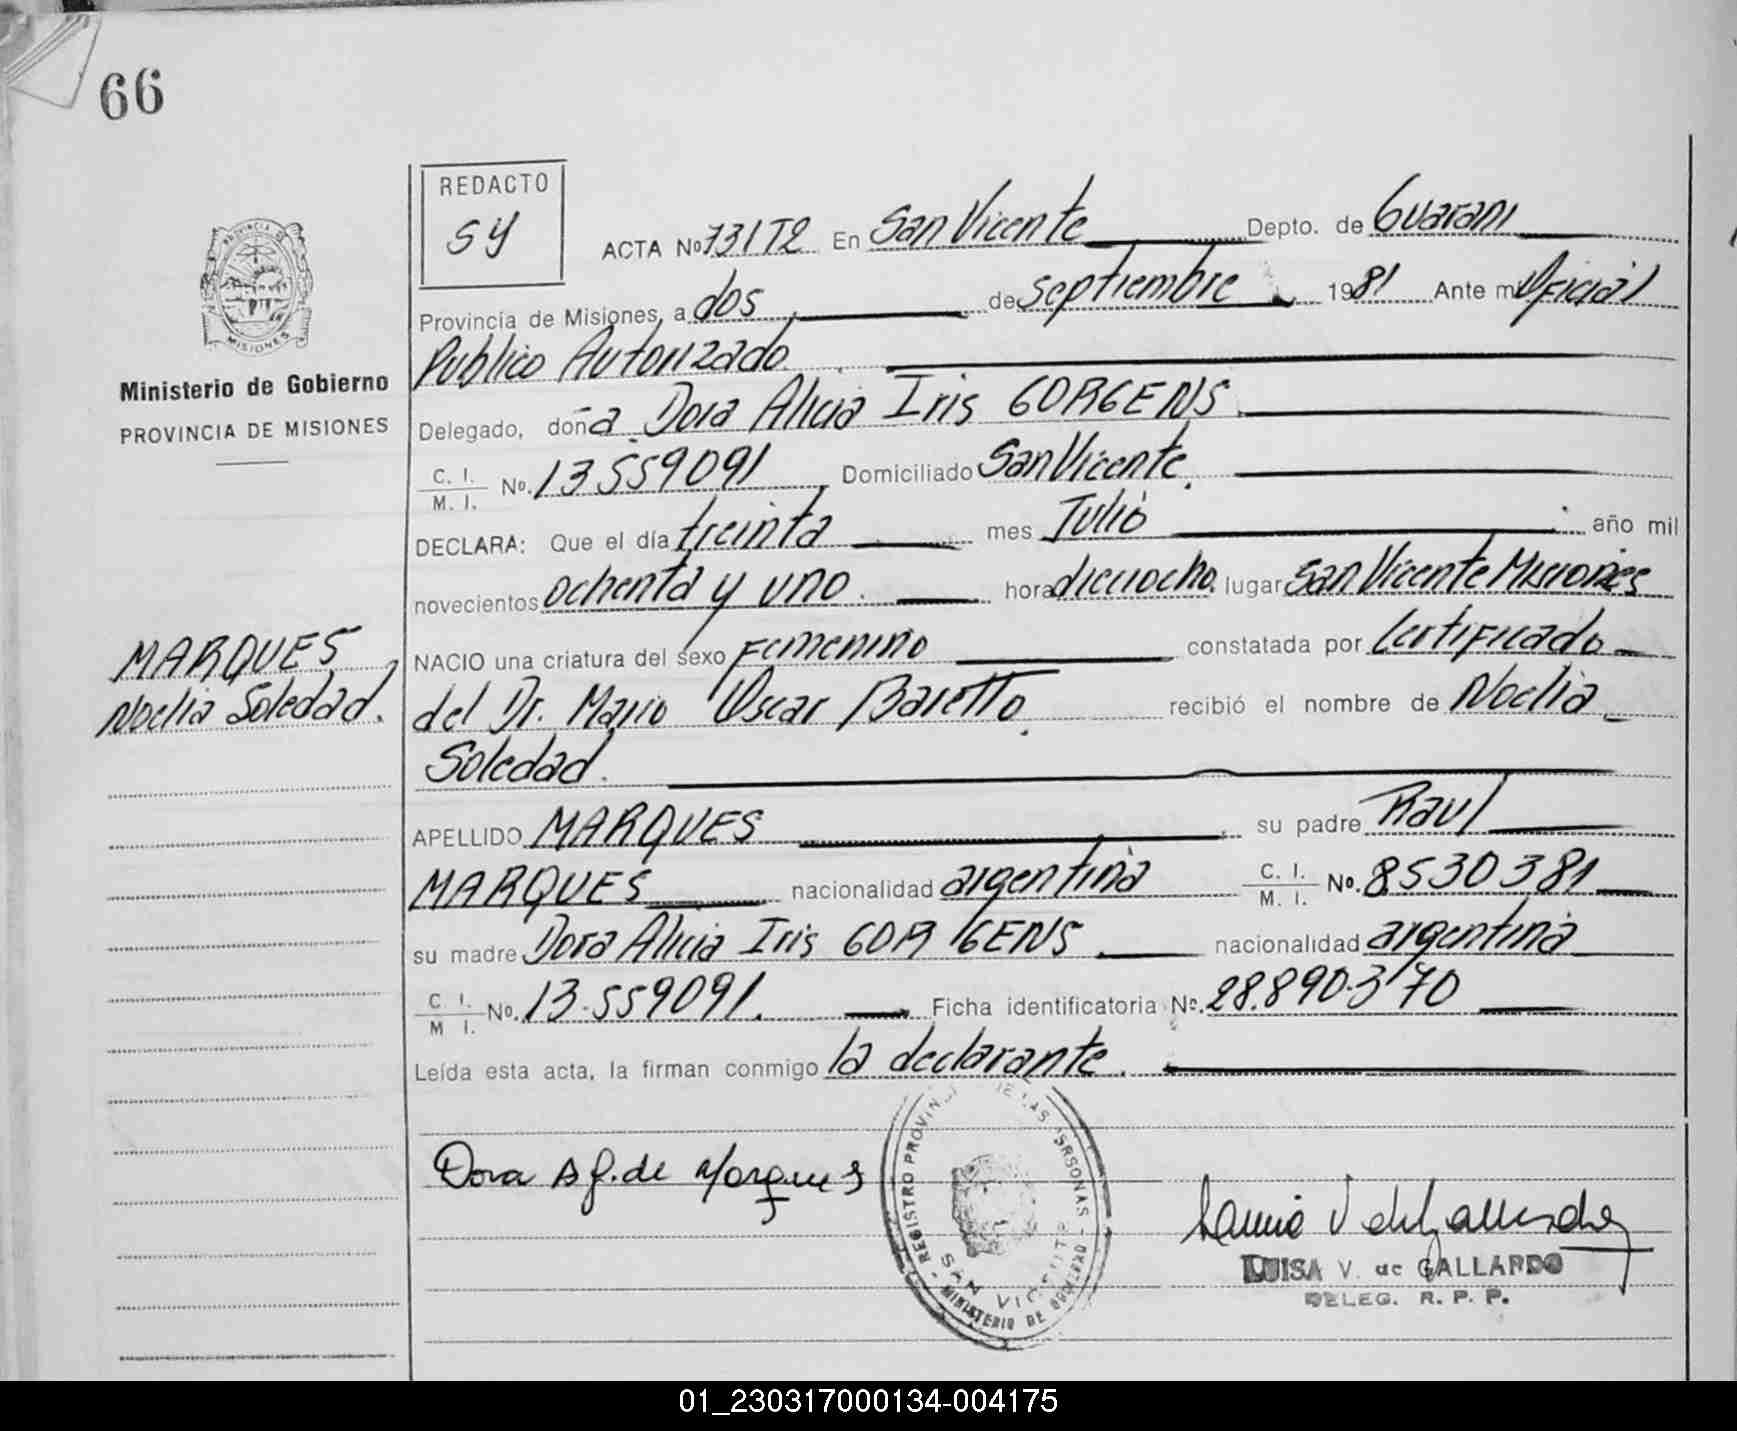 66
REDACTO
SY
ACTA No 731T2 En San Vicente Depto. de Guarani
Provincia de Misiones, a dos de septiembre 1981 Ante mi Oficial
Publico Autorizado.
Delegado, doña Dora Alicia Iris GORGENS
C. I.
M. I. No. 13559091 Domiciliado San Vicente.
DECLARA: Que el día treinta mes Julio año mil
novecientos ochenta y uno. hora dieciocho. lugar San Vicente Misiones
NACIO una criatura del sexo Femenino constatada por Certificado
del Dr. Mario Oscar Baretto. recibió el nombre de Noelia
Soledad.
APELLIDO MARQUES su padre Raul
MARQUES nacionalidad argentina C. I.
M. I. No. 8530381
su madre Dora Alicia Iris GORGENS nacionalidad argentina
C. I.
M. I. No. 13.559091. Ficha identificatoria No. 28.890.370
Leída esta acta, la firman conmigo la declarante.
PROVINCIA DE
MISIONES
Ministerio de Gobierno
PROVINCIA DE MISIONES
MARQUES,
Noelia Soledad.
Dora A G. de Marques
REGISTRO PROVINCIAL DE LAS PERSONAS
SAN VICENTE
MINISTERIO DE GOBIERNO
LUISA V. de GALLARDO
DELEG. R. P. P.
01_230317000134-004175